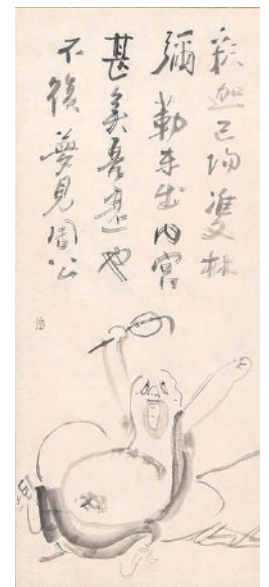 釈迦已雙林
彌勒未出内宮
甚矣吾衰也
不復夢見周公